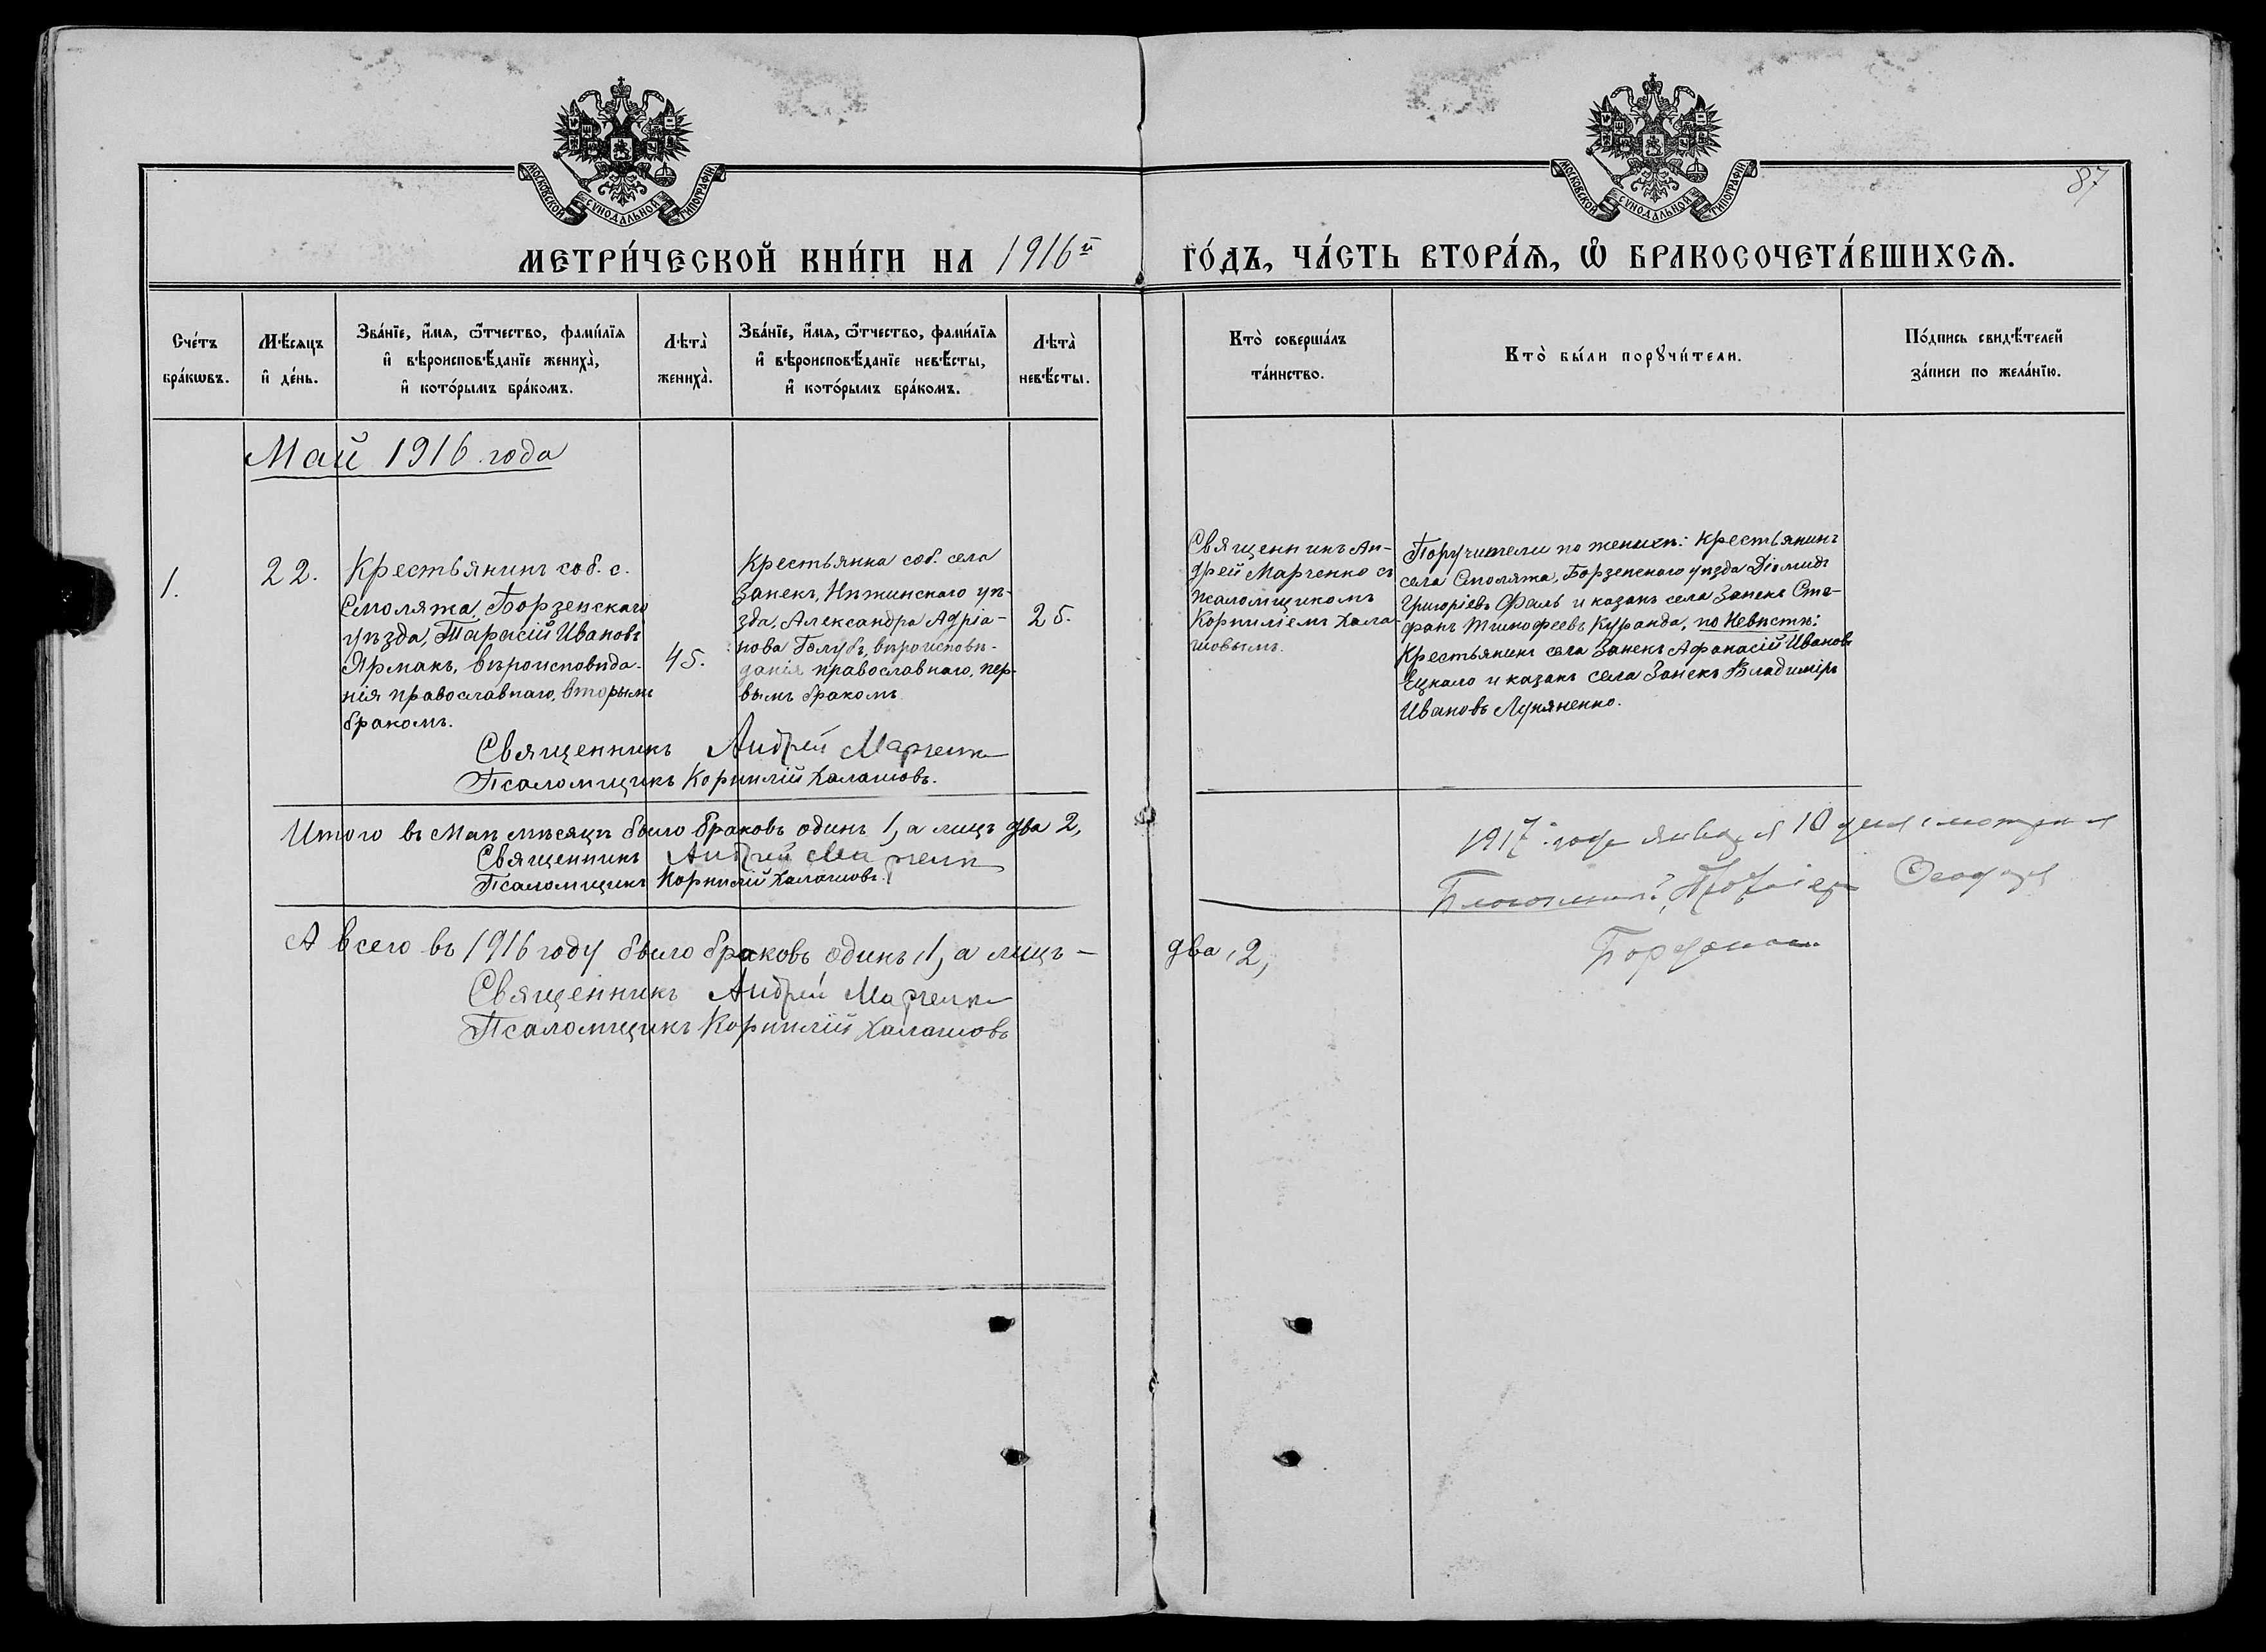 87
МОСКОВСКОЙ СУНОДАЛЬНОЙ ТИПОГРАФІИ.
МОСКОВСКОЙ СУНОДАЛЬНОЙ ТИПОГРАФІИ.
МЕТРИ́ЧЕСКОЙ КНИ́ГИ НА 1916й ГО́ДЪ, ЧА́СТЬ ВТОРА́Ѧ, Ѽ БРАКОСОЧЕТА́ВШИХСѦ.
Сче́тъ
бра́кѡвъ.
Мѣ́сяцъ
и҆ де́нь.
Зва́нїе, и҆́мѧ, ѻ҆́тчество, фами́лїѧ
и҆ вѣроисповѣ́данїе жениха̀,
и҆ кото́рымъ бра́комъ.
Лѣта̀
жениха̀.
Зва́нїе, и҆́мѧ, ѻ҆́тчество, фами́лїѧ
и҆ вѣроисповѣ́данїе невѣ́сты,
и҆ кото́рымъ бра́комъ.
Лѣта̀
невѣ́сты.
Кто̀ соверша́лъ
та́инство.
Кто̀ бы́ли порꙋчи́тели.
По́дпись свидѣ́телей
за́писи по жела́нїю.
Май 1916 года
1.
22.
Крестьянинъ соб. с.
Смоляжа, Борзенскаго
уѣзда, Тарасій Ивановъ
Ярмакъ, вѣроисповѣда-
нія православнаго, вторымъ
бракомъ.
45.
Крестьянка соб. села
Занекъ, Нѣжинскаго уѣ-
зда, Александра Адріа-
нова Голубъ, вѣроисповѣ-
данія православнаго, пер-
вымъ бракомъ.
25.
Священникъ Ан-
дрей Марченко съ
псаломщикомъ
Корниліемъ Хала-
шовымъ.
Поручители по женихѣ: Крестьянинъ
села Смоляжа, Борзенскаго уѣзда Діомидъ
Григоріевъ Фаль и казакъ села Занекъ Сте-
фанъ Тимофеевъ Куранда, по Невѣстѣ:
Крестьянинъ села Занекъ Афанасій Ивановъ
Ецкало и казакъ села Занекъ Владиміръ
Ивановъ Лукяненко.
Священникъ Андрей Марченко
Псаломщикъ Корнилій Халашовъ.
Итого въ Маѣ мѣсяцѣ было браковъ одинъ 1, а лицъ два 2,
Священникъ Андрей Марченко
Псаломщикъ Корнилій Халашовъ.
1917 года января 10 дня смотрѣлъ
Благочинный, Протоіерей
А всего въ 1916 году было браковъ одинъ, 1, а лицъ – два, 2,
Священникъ Андрей Марченко
Псаломщикъ Корнилій Халашовъ